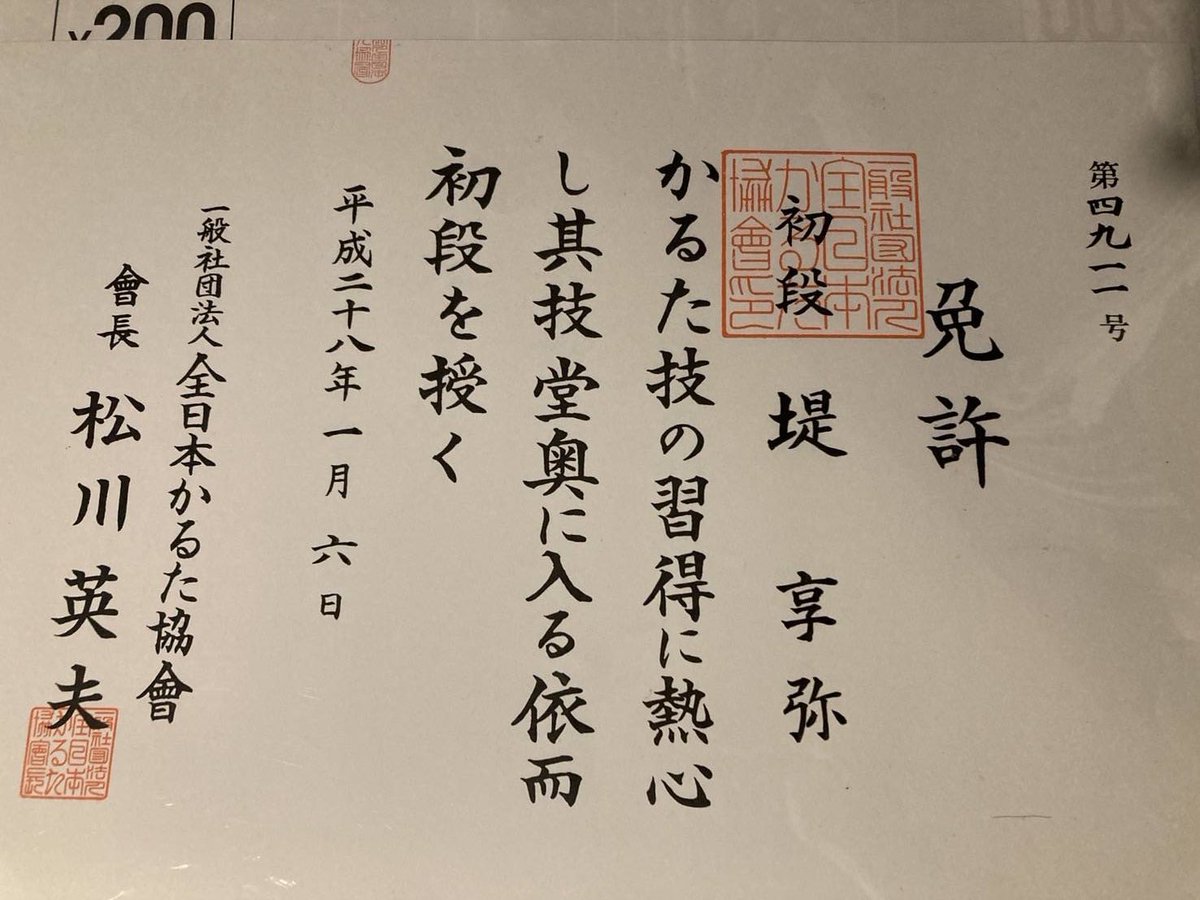 ¥200
第四九一一号
免許
初段 堤 享弥
かるた技の習得に熱心
し其技堂奥に入る依而
初段を授く
平成二十八年一月六日
一般社団法人全日本かるた協會
會長 松川英夫